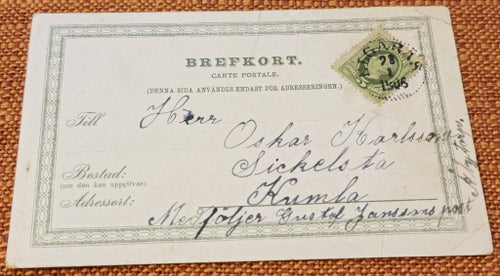 BREFKORT.
CARTE POSTALE.
(DENNA SIDA ANVÄNDES ENDAST FÖR ADRESSERINGEN.)
28
1
1905
Till
Herr
Oskar Karlsson
Bostad:
(om den kan uppgifvas)
Sickelsta
Adressort:
Kumla
Medföljer Gustaf Janssons post